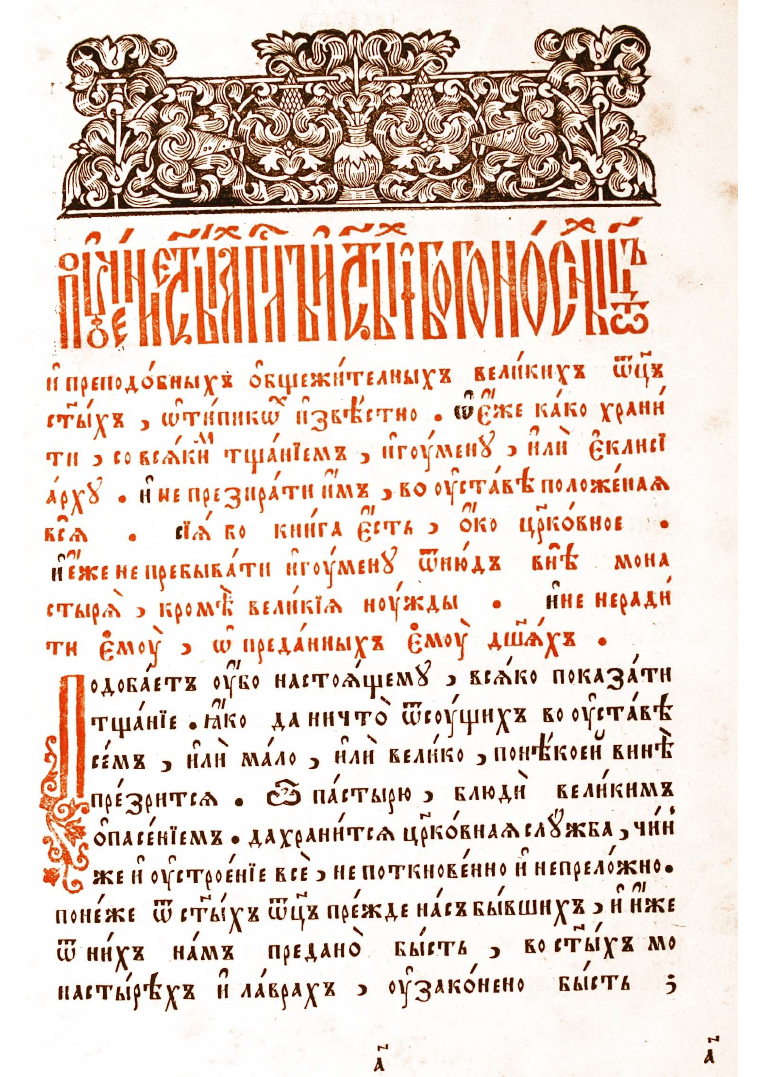 Поꙋче́нїе ст҃ы́хъ а҆пⷭ҇лъ и҆ ст҃ы́хъ бг҃оно́сныхъ ѻ҆ц҃ъ
и҆ преподо́бныхъ ѻ҆бщежи́телныхъ вели́кихъ ѿц҃ъ
ст҃ы́хъ , ѡ҆ти́пикѡⷯ и҆зве́стно . ѿе́ же ка́ко храни́
ти , со вся́киⷨ тща́нїемъ , и҆гоу́менꙋ , и҆лѝ є҆клисї
а́рхꙋ . и҆ не презира́ти и҆̀мъ , во оу҆ста́вѣ положе́ная
всѧ̑ . сїѧ̀ бо кни́га є҆́сть , ѻ҆́ко цр҃ко́вное .
и҆ є҆́же не пребыва́ти и҆гоу́менꙋ ѿню́дъ внѣ̀ мона
стырѧ̀ , кромѣ̀ вели́кїѧ ноу́жды . и҆ не неради́
ти є҆моу̀ , ѡ҆ преда́нныхъ є҆моу̀ дш҃а́хъ .
Подоба́етъ оу҆́бо настоѧ́щемꙋ , всѧ́ко показа́ти
тща́нїе . ꙗ҆́ко да ничто̀ ѿсоу́щихъ во оу҆ста́вѣ
се́мъ , и҆лѝ ма́ло , и҆лѝ вели́ко , понѣ́коей винѣ̀
пре́зритсѧ . Ѽ па́стырю , блюдѝ вели́кимъ
ѻ҆пасе́нїемъ . да храни́тсѧ цр҃ко́внаѧ слꙋ́жба , чи́н
же и҆ оу҆строе́нїе всѐ , не поткнове́нно и҆ непрело́жно .
поне́же ѿ ст҃ы́хъ ѿц҃ъ пре́жде на́съ бы́вшихъ , и҆ и҆̀же
ѿ ни́хъ на́мъ предано̀ бы́сть , во ст҃ы́хъ мо
настырѣ́хъ и҆ ла́врахъ , оу҆зако́нено бы́сть ;
а҃
а҃